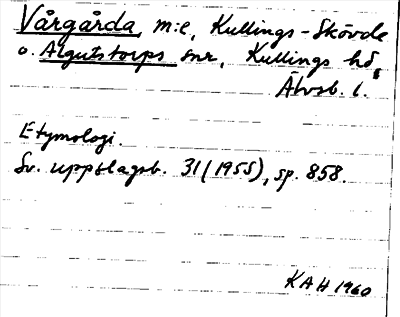 Vårgårda, m:e, Kullings-Skövde
o. Algutstorps snr, Kullings hd,
Älvsb. l.
Etymologi.
Sv. uppslagsb. 31 (1955), sp. 858.
KAH 1960